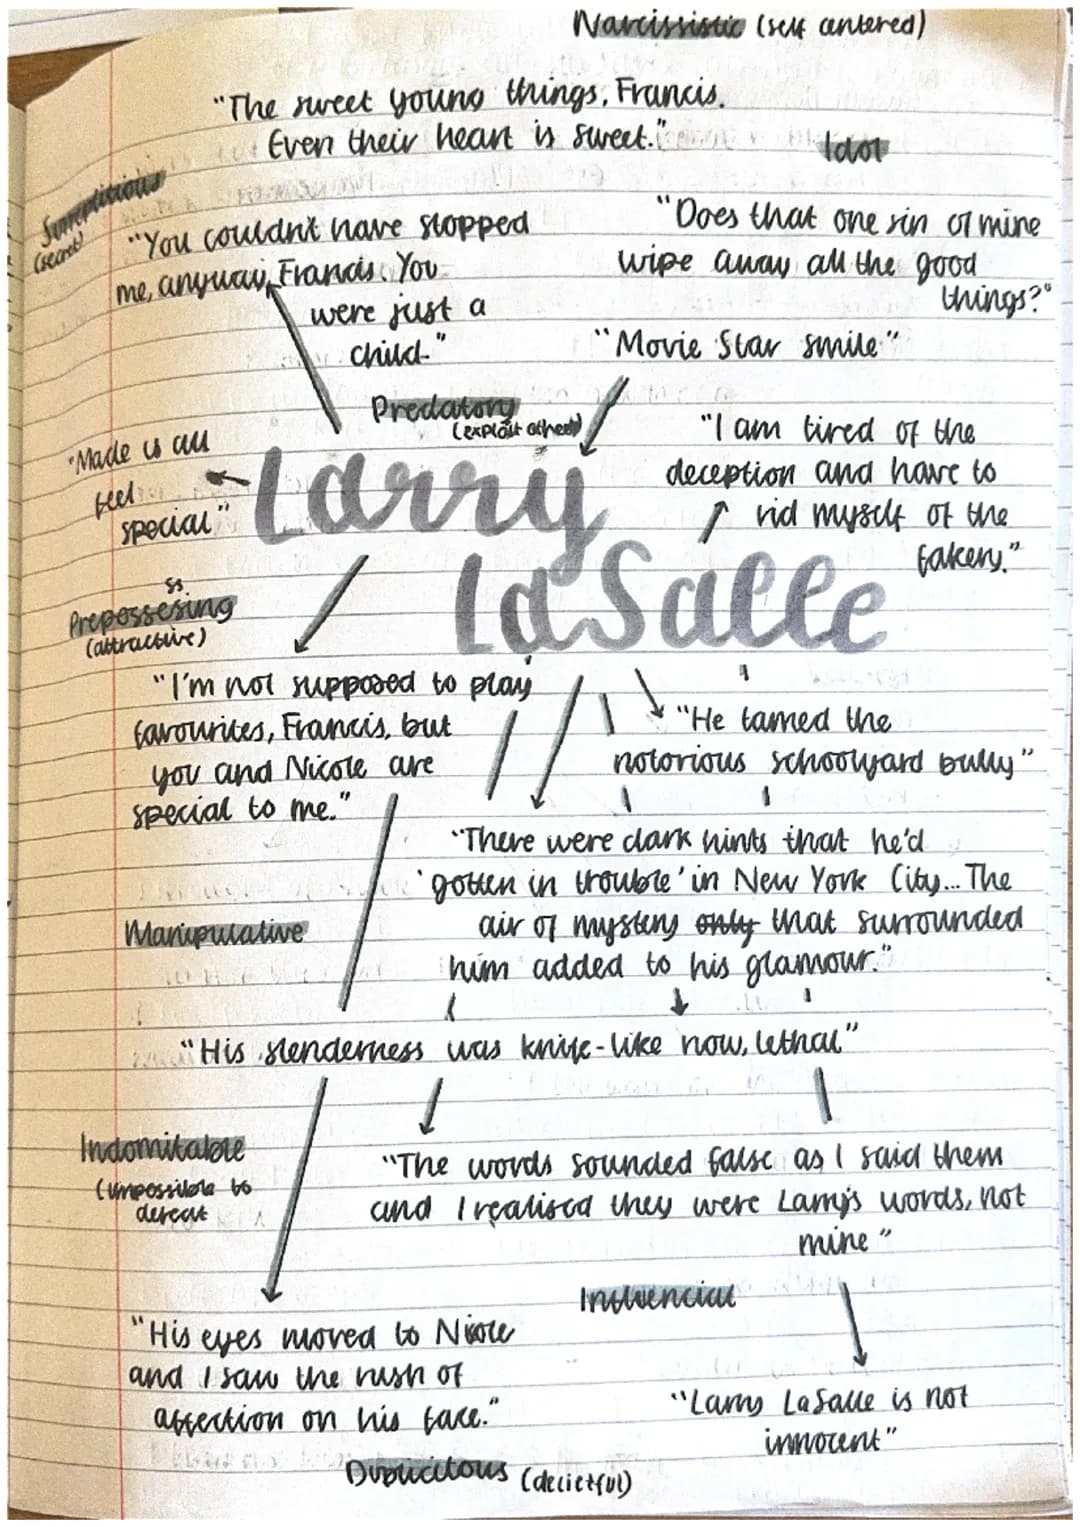 Narcissistic (self centered)
"The sweet young things, Francis.
Even their heart is sweet."
Idol
Surreptitious
(secret)
"You couldn't have stopped
me, anyway, Francis. You
were just a
child."
"Does that one sin of mine
wipe away all the good
things?"
"Movie Star smile."
Predatory
(exploit others)
"Made us all
feel
special"
Larry
LaSalle
"I am tired of the
deception and have to
rid myself of the
fakery."
ss
Prepossesing
(attractive)
"I'm not supposed to play
favourites, Francis, but
you and Nicole are
special to me."
"He tamed the
notorious schoolyard bully"
"There were dark hints that he'd
'gotten in trouble' in New York City... The
air of mystery only that surrounded
him added to his glamour."
Manipulative
"His slenderness was knife-like now, lethal"
Indomitable
(impossible to
defeat
"The words sounded false as I said them
and I realised they were Larry's words, not
mine"
Influencial
"His eyes moved to Nicole
and I saw the rush of
affection on his face."
"Larry LaSalle is not
innocent"
Duplicitous (decietful)